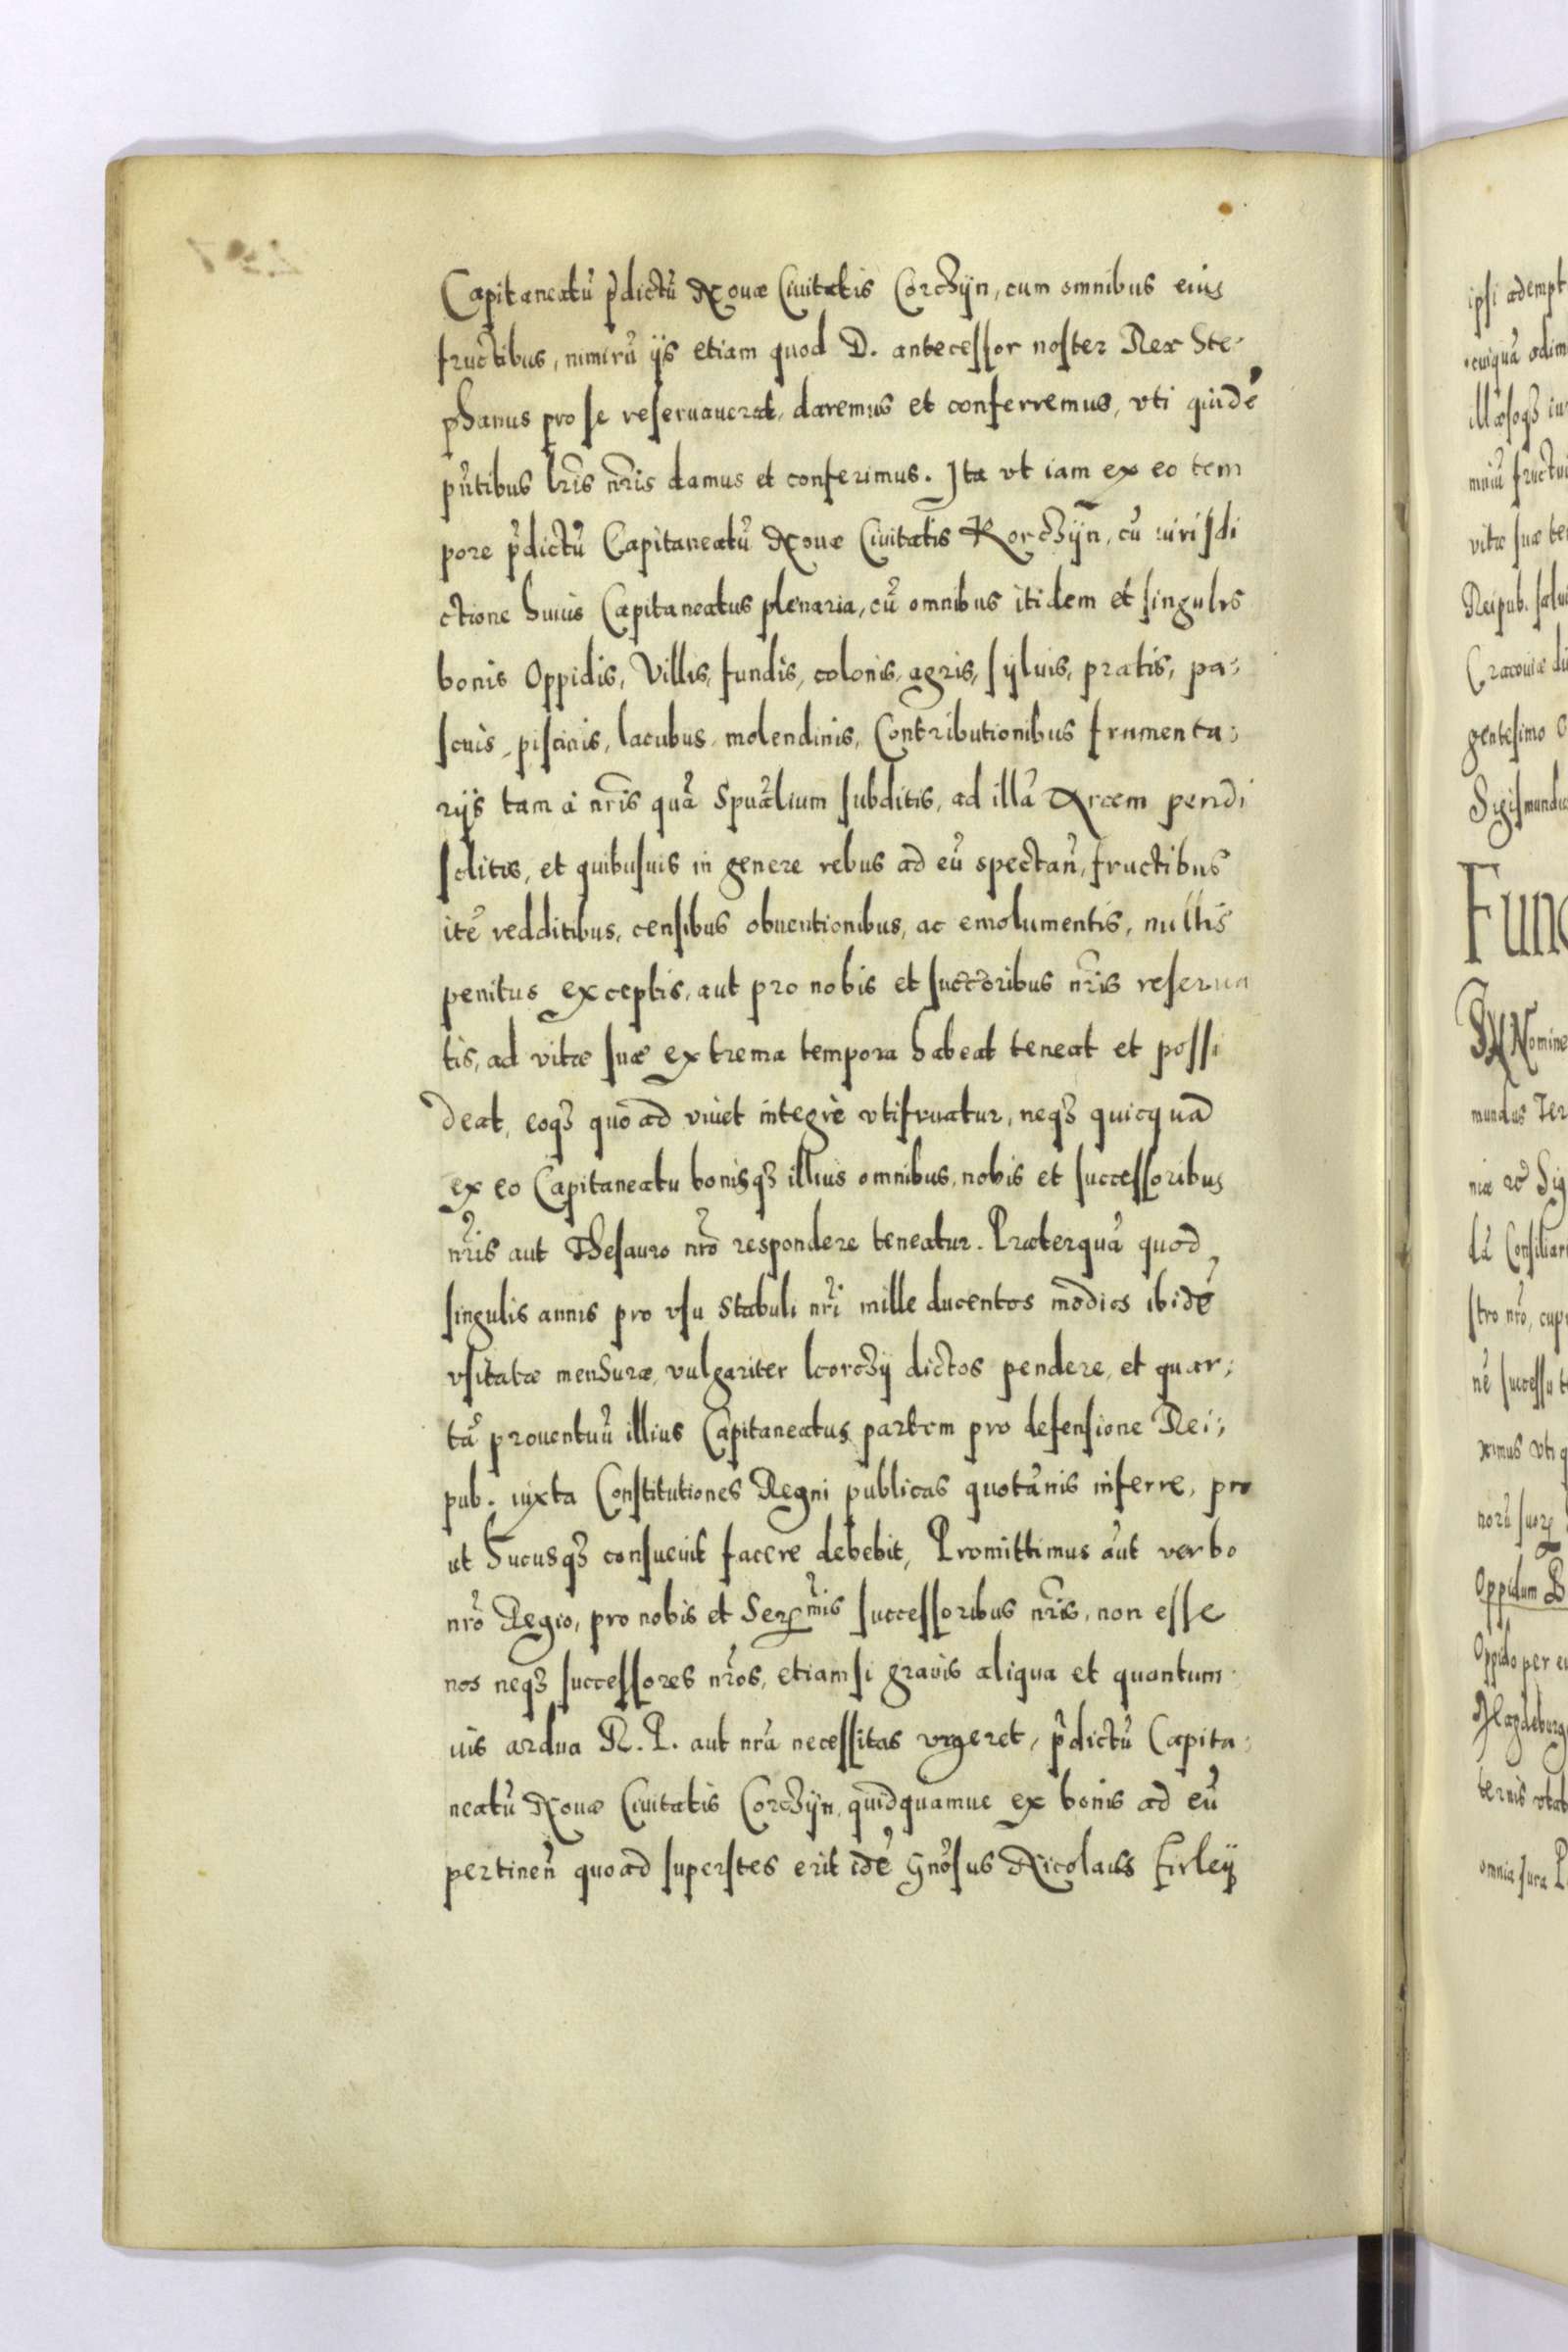 Capitaneatũ p̃dictũ Nouæ Ciuitatis Corchÿn, cum omnibus eius
fructibus, nimirũ ijs etiam quod D. antecessor noster Rex Ste-
phanus pro se reseruauerat, daremus et conferremus, vti quidẽ
pñtibus lr̃is nr̃is damus et conferimus. Ita vt iam ex eo tem
pore p̃dictũ Capitaneatũ Nouæ Ciuitatis Korchÿn, cũ iurisdi
ctione huius Capitaneatus plenaria, cũ omnibus itidem et singulis
bonis Oppidis, Villis, fundis, colonis, agris, sÿluis, pratis, pa-
scuis, piscinis, lacubus, molendinis, Contributionibus frumenta-
rijs tam à nr̃is quã Spuãlium subditis, ad illã Arcem pendi
solitis, et quibusuis in genere rebus ad eũ spectañ, fructibus
itẽ redditibus, censibus obuentionibus, ac emolumentis, nullis
penitus exceptis, aut pro nobis et succõribus nr̃is reserua
tis, ad vitæ suæ extrema tempora habeat teneat et possi
deat, eoq3 quoad viuet integrè vtifruatur, neq3 quicquã
ex eo Capitaneatu bonisq3 illius omnibus, nobis et successoribus
nr̃is aut Thesauro nr̃o respondere teneatur. Præterquã quod
singulis annis pro vsu stabuli nr̃i mille ducentos modios ibidẽ
vsitatæ mensuræ, vulgariter korchÿ dictos pendere, et quar-
tã prouentuũ illius Capitaneatus partem pro defensione Rei-
pub. iuxta Constitutiones Regni publicas quotãnis inferre, pro
ut hucusq3 consueuit facere debebit, Promittimus aũt verbo
nr̃o Regio, pro nobis et Serm̃is successoribus nr̃is, non esse
nos neq3 successores nr̃os, etiamsi grauis aliqua et quantum-
uis ardua R. P. aut nr̃a necessitas vrgeret, p̃dictũ Capita-
neatũ Nouæ Ciuitatis Corchÿn, quidquamue ex bonis ad eũ
pertineñ quoad superstes erit idẽ Gnõsus Nicolaus Firleÿ